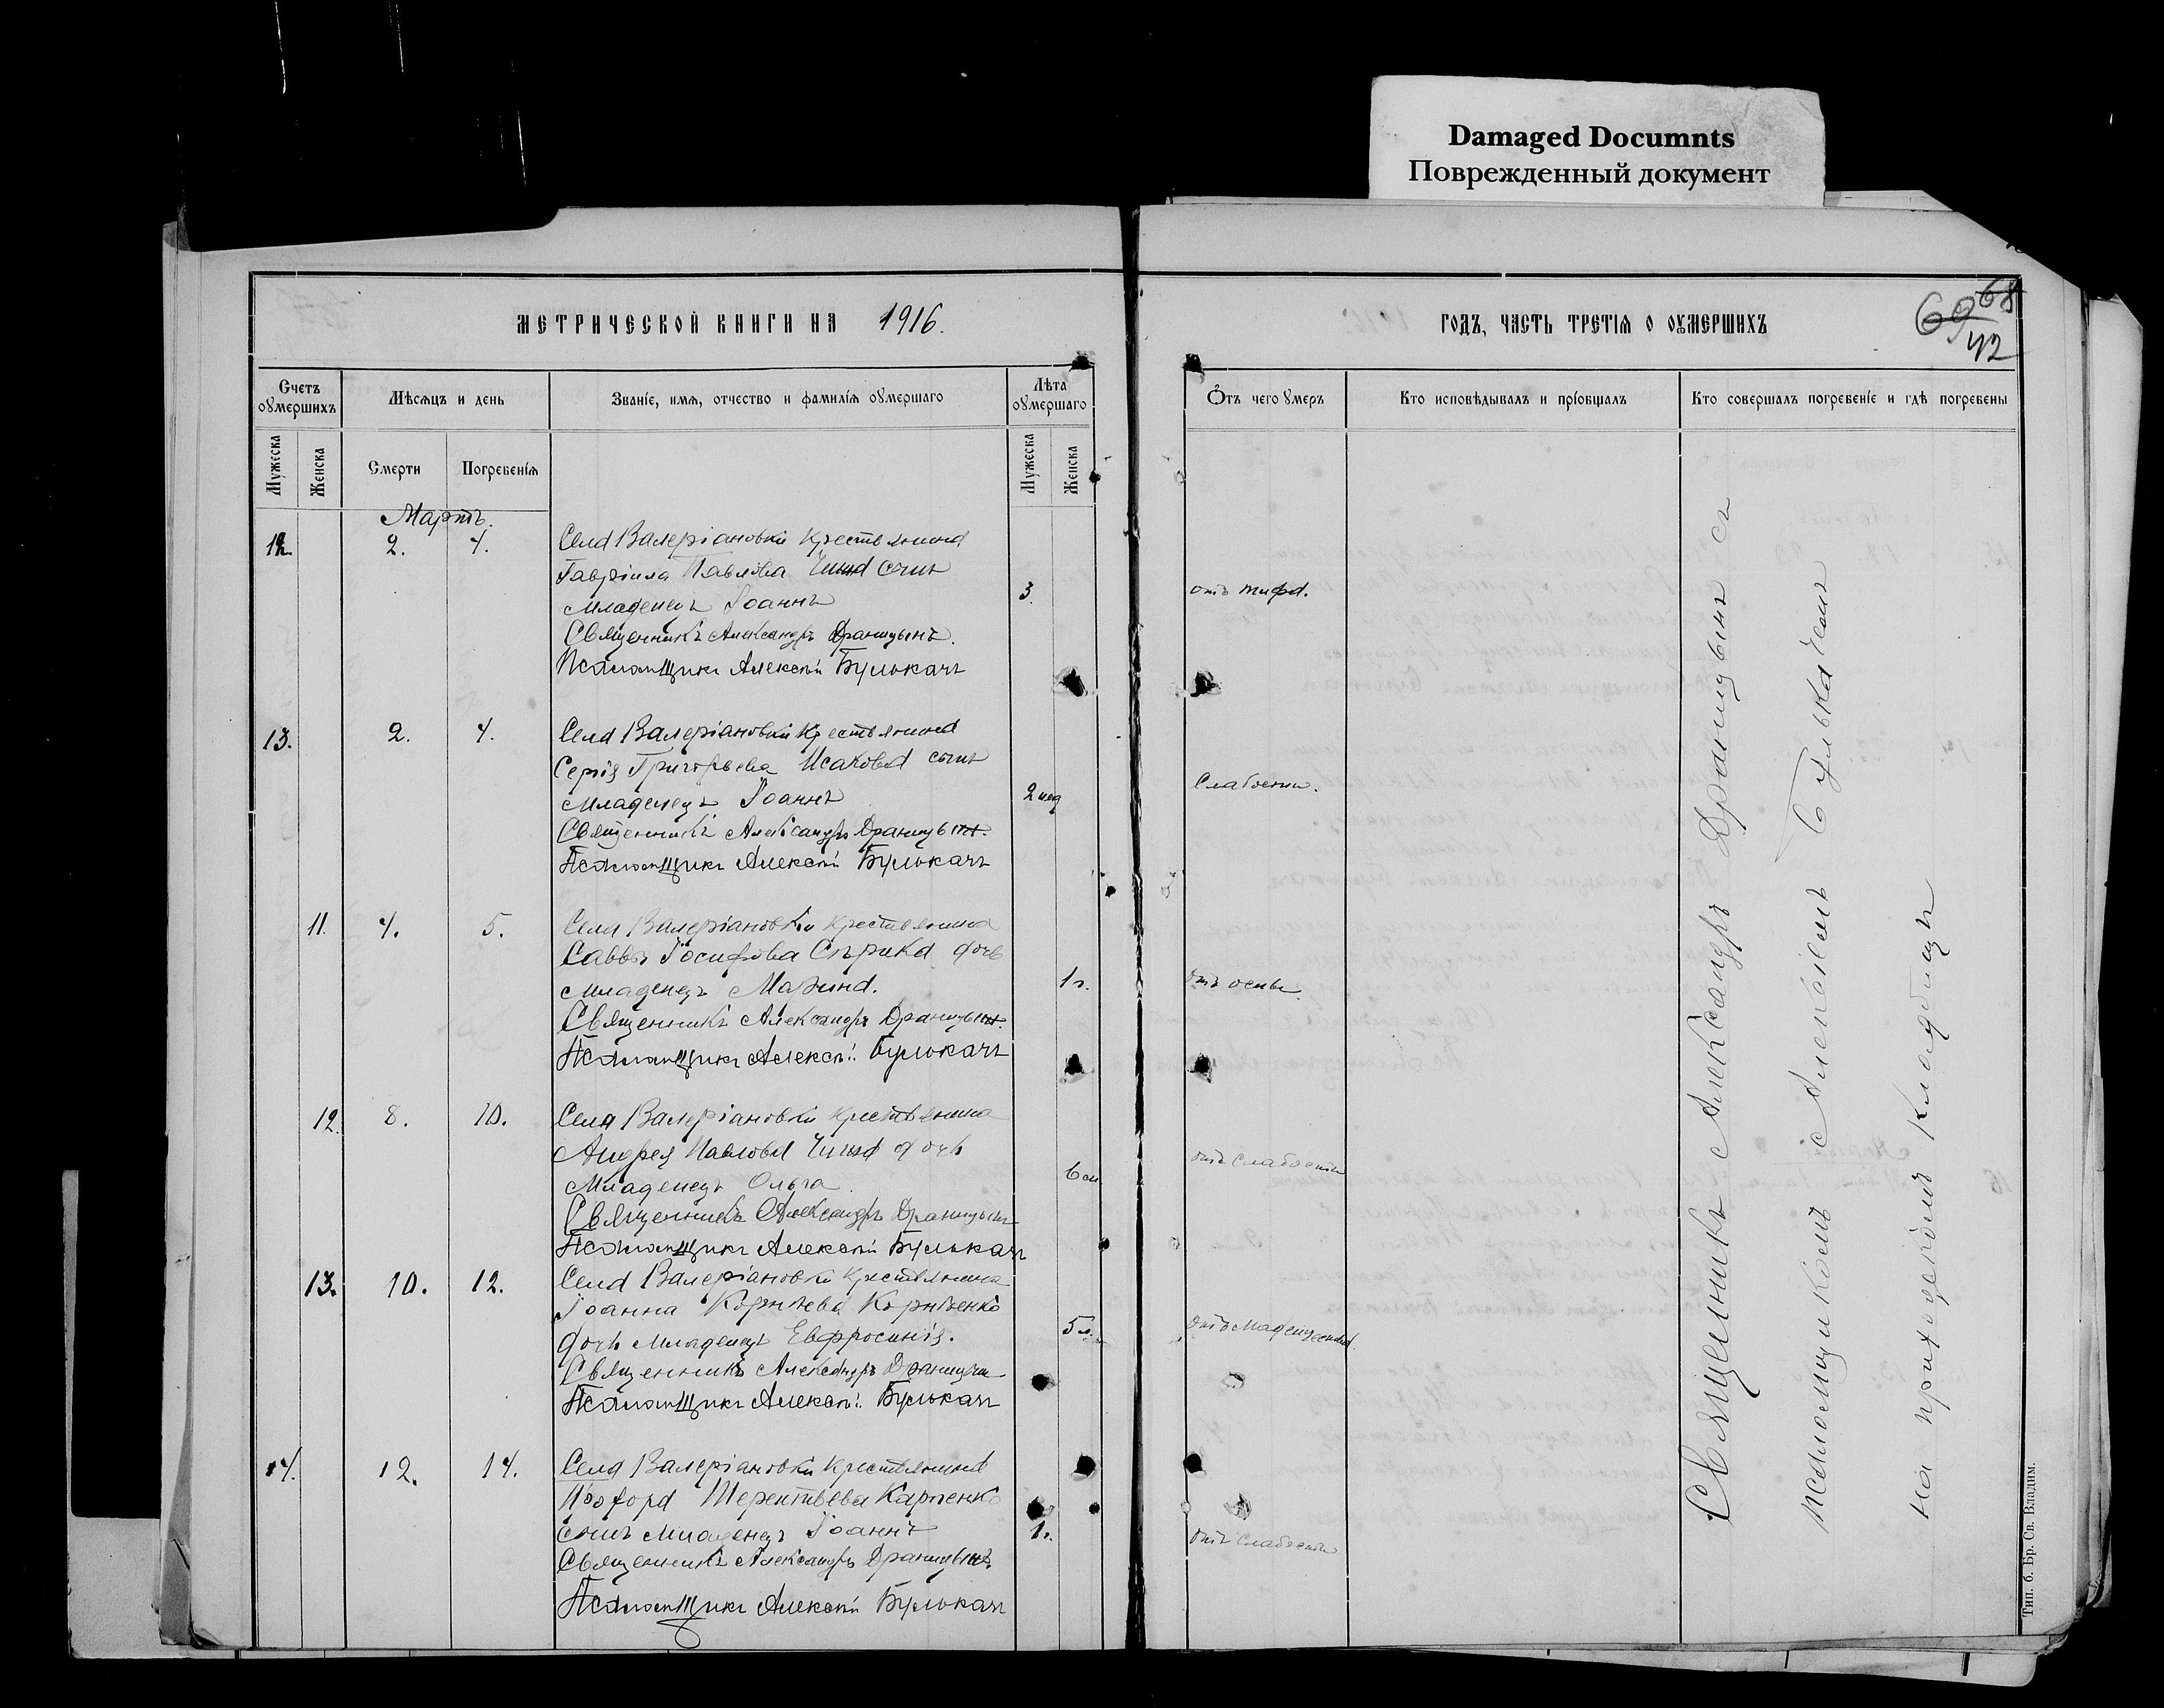 Damaged Documnts
Поврежденный документ
МЕТРИЧЕСКОЙ КНИГИ НА 1916.
ГОДЪ, ЧАСТЬ ТРЕТІЯ О ОУМЕРШИХЪ
69 68
42
Счетъ оумершихъ
Мѣсяцъ и день
Званіе, имя, отчество и фамилія оумершаго
Лѣта оумершаго
Отъ чего умеръ
Кто исповѣдывалъ и пріобщалъ
Кто совершалъ погребеніе и гдѣ погребены
Мужеска
Женска
Смерти
Погребенія
Мужеска
Женска
Мартъ.
12. 2. 4. Села Валеріановки крестьянина
Гавріила Павлова сынъ
младенецъ Іоаннъ 3. отъ тифа.
Священникъ Александръ Драницынъ.
Псаломщикъ Алексѣй Булькачъ
13. 2. 4. Села Валеріановки крестьянина
Сергія Григорьева Исакова сынъ
младенецъ Іоаннъ 2 нед Слабости.
Священникъ Александръ Драницынъ.
Псаломщикъ Алексѣй Булькачъ
11. 4. 5. Села Валеріановки крестьянина
Саввы Іосифова Сѣрика дочь
младенецъ Марина. 1 г. отъ оспы.
Священникъ Александръ Драницынъ.
Псаломщикъ Алексѣй Булькачъ
12. 8. 10. Села Валеріановки крестьянина
Андрея Павлова дочь
младенецъ Ольга 6 м отъ слабости
Священникъ Александръ Драницынъ
Псаломщикъ Алексѣй Булькачъ
13. 10. 12. Села Валеріановки крестьянина
Іоанна Корнѣева Корнѣенко
дочь младенецъ Евфросинія. 5 л. отъ
Священникъ Александръ Драницынъ
Псаломщикъ Алексѣй Булькачъ
14. 12. 14. Села Валеріановки крестьянина
Терентьева Карпенко
сынъ младенецъ Іоаннъ 1 г. отъ слабости
Священникъ Александръ Драницынъ
Псаломщикъ Алексѣй Булькачъ
Священникъ Александръ Драницынъ съ
псаломщикомъ Алексѣемъ Булькачемъ
на приходскомъ кладбищѣ
Тип. б. Бр. Св. Владим.